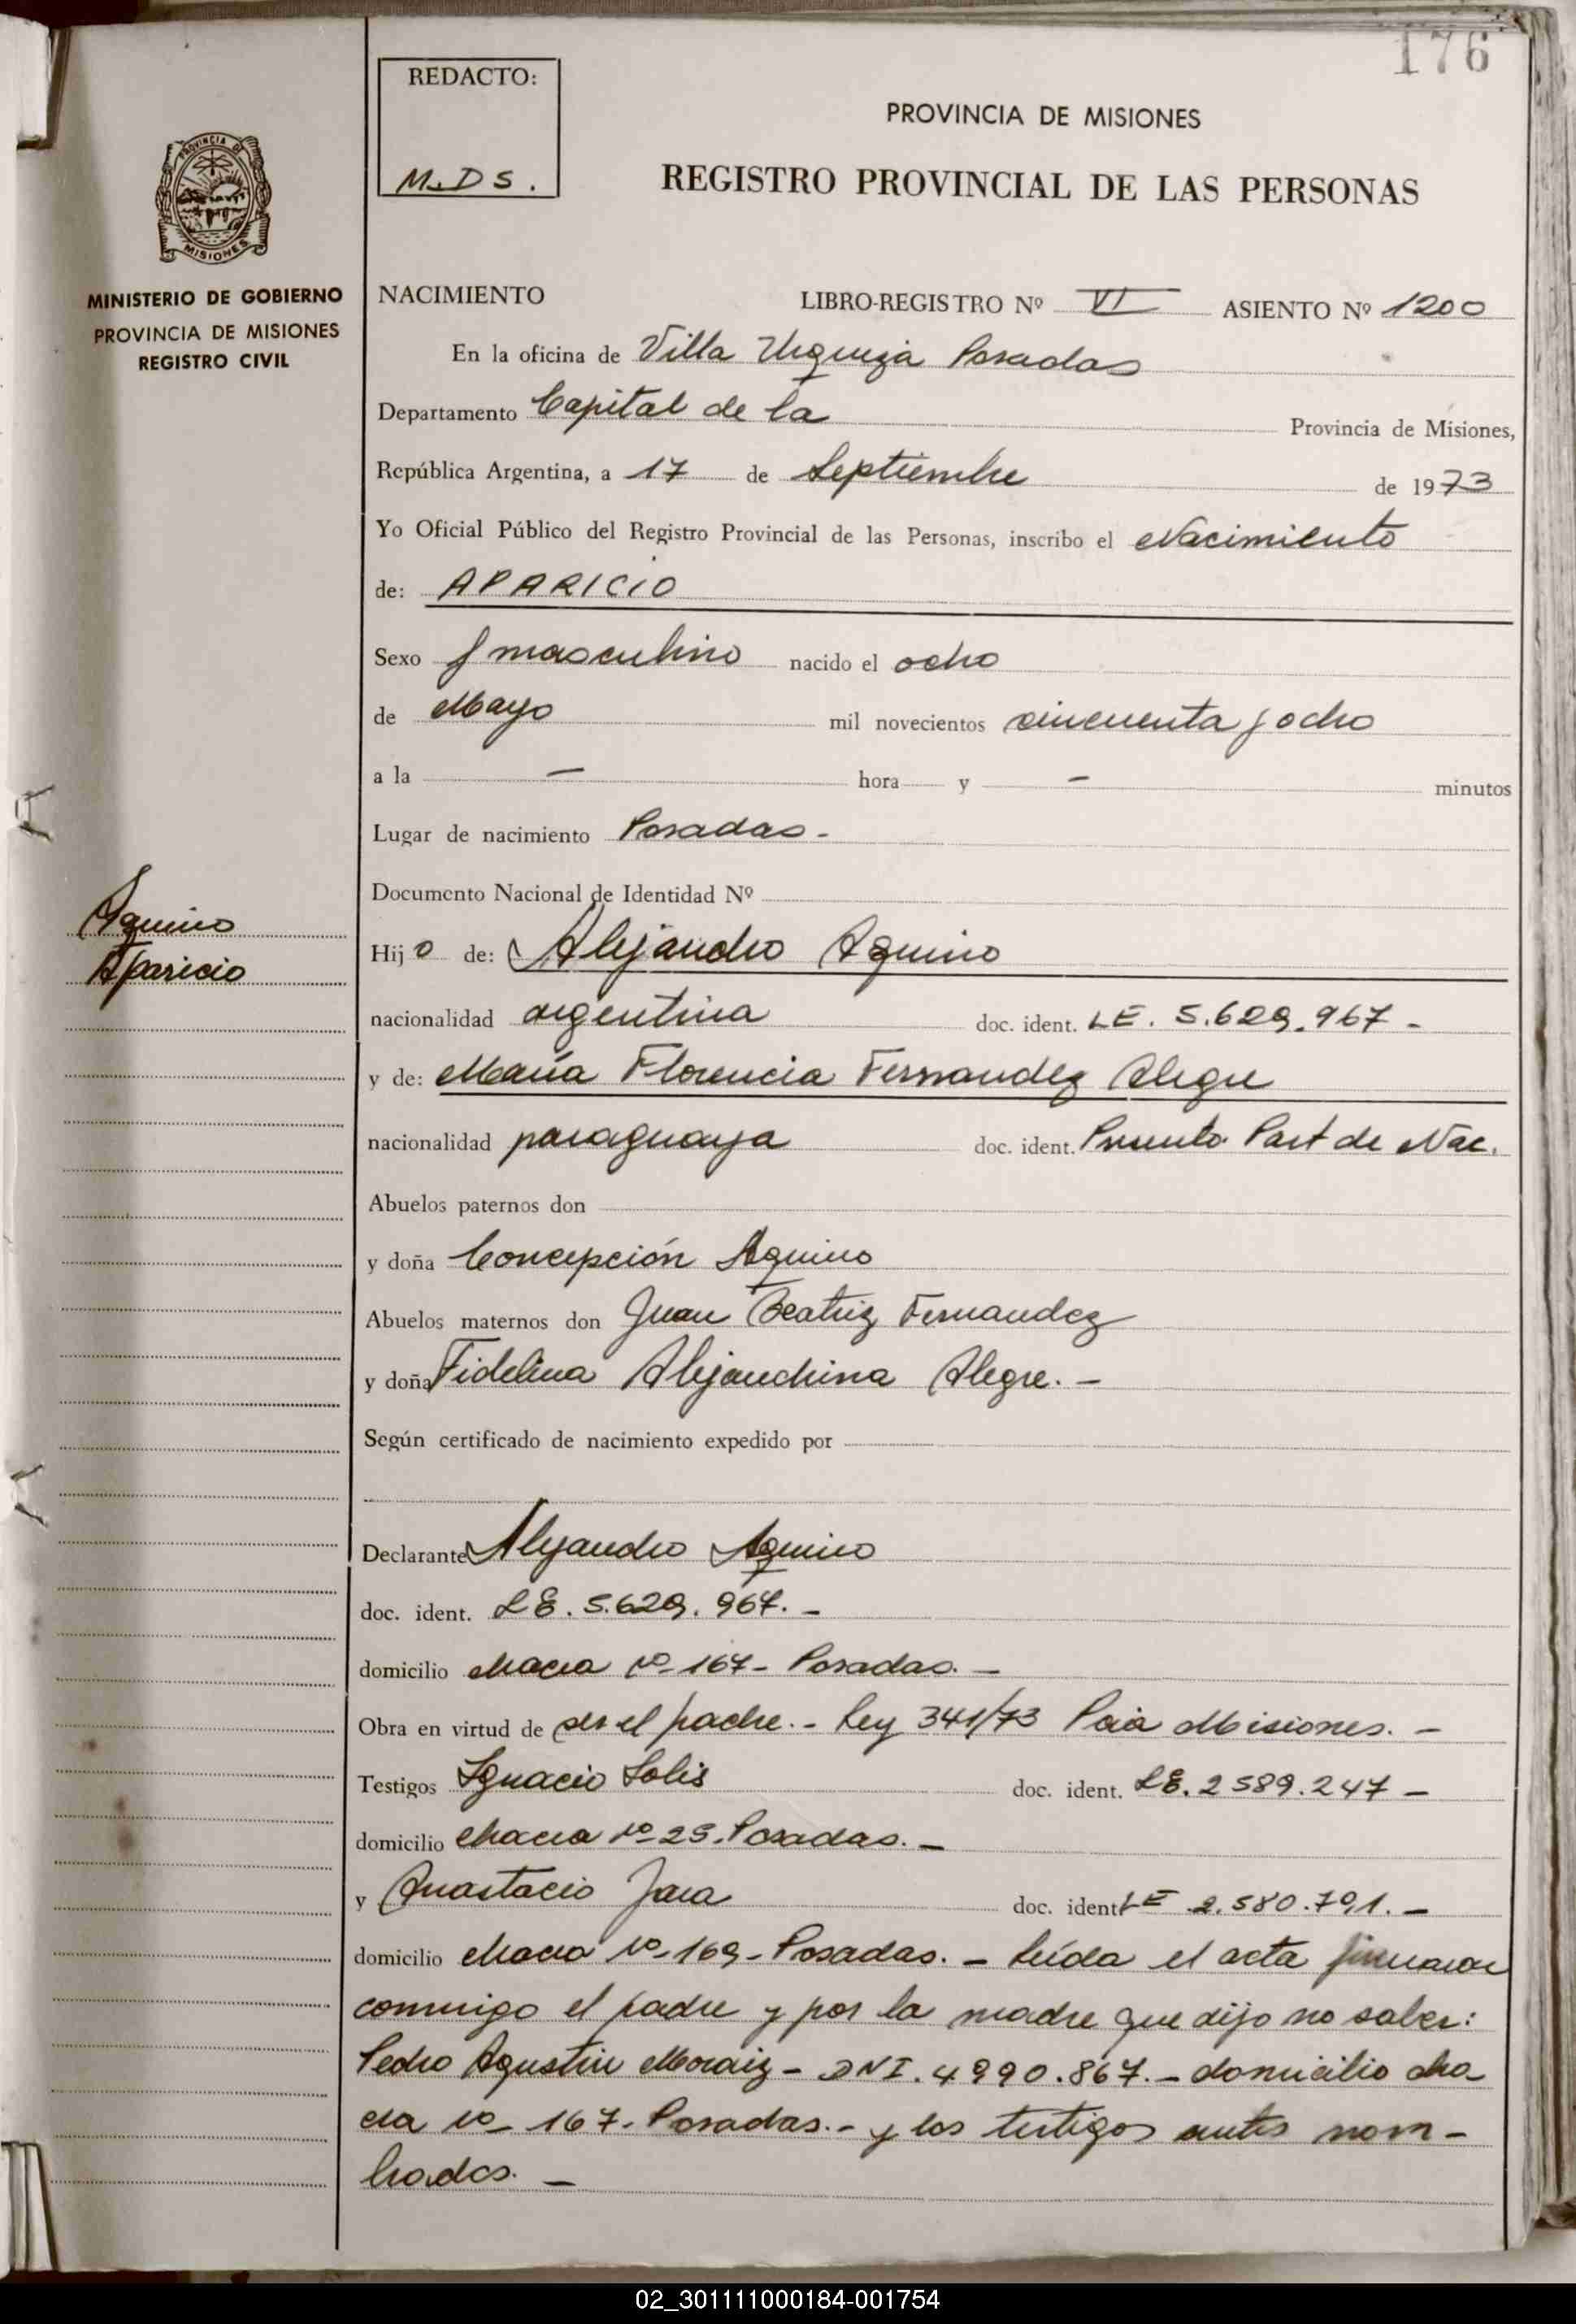 176
REDACTO:
M.D S.
PROVINCIA DE MISIONES
REGISTRO PROVINCIAL DE LAS PERSONAS
PROVINCIA DE
MISIONES
MINISTERIO DE GOBIERNO
PROVINCIA DE MISIONES
REGISTRO CIVIL
NACIMIENTO LIBRO-REGISTRO Nº VI ASIENTO Nº 1200
En la oficina de Villa Urquiza Posadas
Departamento Capital de la Provincia de Misiones,
República Argentina, a 17 de Septiembre de 1973
Yo Oficial Público del Registro Provincial de las Personas, inscribo el Nacimiento
de: APARICIO
Sexo masculino nacido el ocho
de Mayo mil novecientos cincuenta y ocho
a la — hora y - minutos
Lugar de nacimiento Posadas -
Documento Nacional de Identidad Nº
Aquino
Aparicio
Hijo de: Alejandro Aquino
nacionalidad argentina doc. ident. LE. 5.629.967 -
y de: María Florencia Fernandez Alegre
nacionalidad paraguaya doc. ident. Part de Nac.
Abuelos paternos don
y doña Concepción Aquino
Abuelos maternos don Juan Beatriz Fernandez
y doña Fidelina Alejandrina Alegre. -
Según certificado de nacimiento expedido por
Declarante Alejandro Aquino
doc. ident. LE. 5.629.967. -
domicilio chacra Nº 167- Posadas. -
Obra en virtud de ser el padre. - Ley 341/73 Pcia Misiones. -
Testigos Ignacio Solis doc. ident. LE. 2589.247 -
domicilio chacra Nº 29. Posadas. -
y Anastacio Jara doc. ident LE 2.580.791. -
domicilio chacra Nº 169- Posadas. - Leída el acta firmaron
conmigo el padre y por la madre que dijo no saber:
Pedro Agustin Moraiz - DNI. 4990.867. - domicilio cha-
cra Nº 167- Posadas. - y los testigos antes nom-
brados. -
02_301111000184-001754